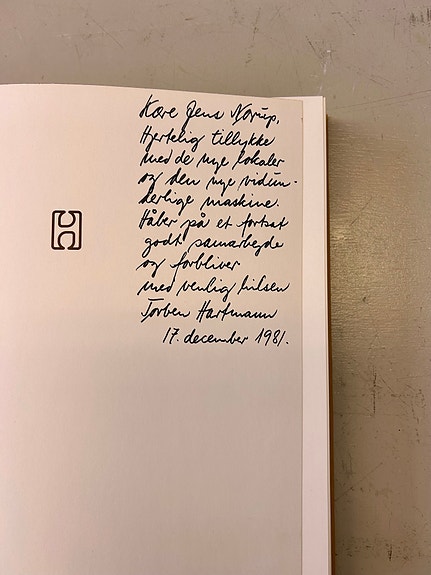 Kære Jens Nørup,
Hjertelig tillykke
med de nye lokaler
og den nye vidun-
derlige maskine.
Håber på et fortsat
godt samarbejde
og forbliver
med venlig hilsen
Torben Hartmann
17. december 1981.